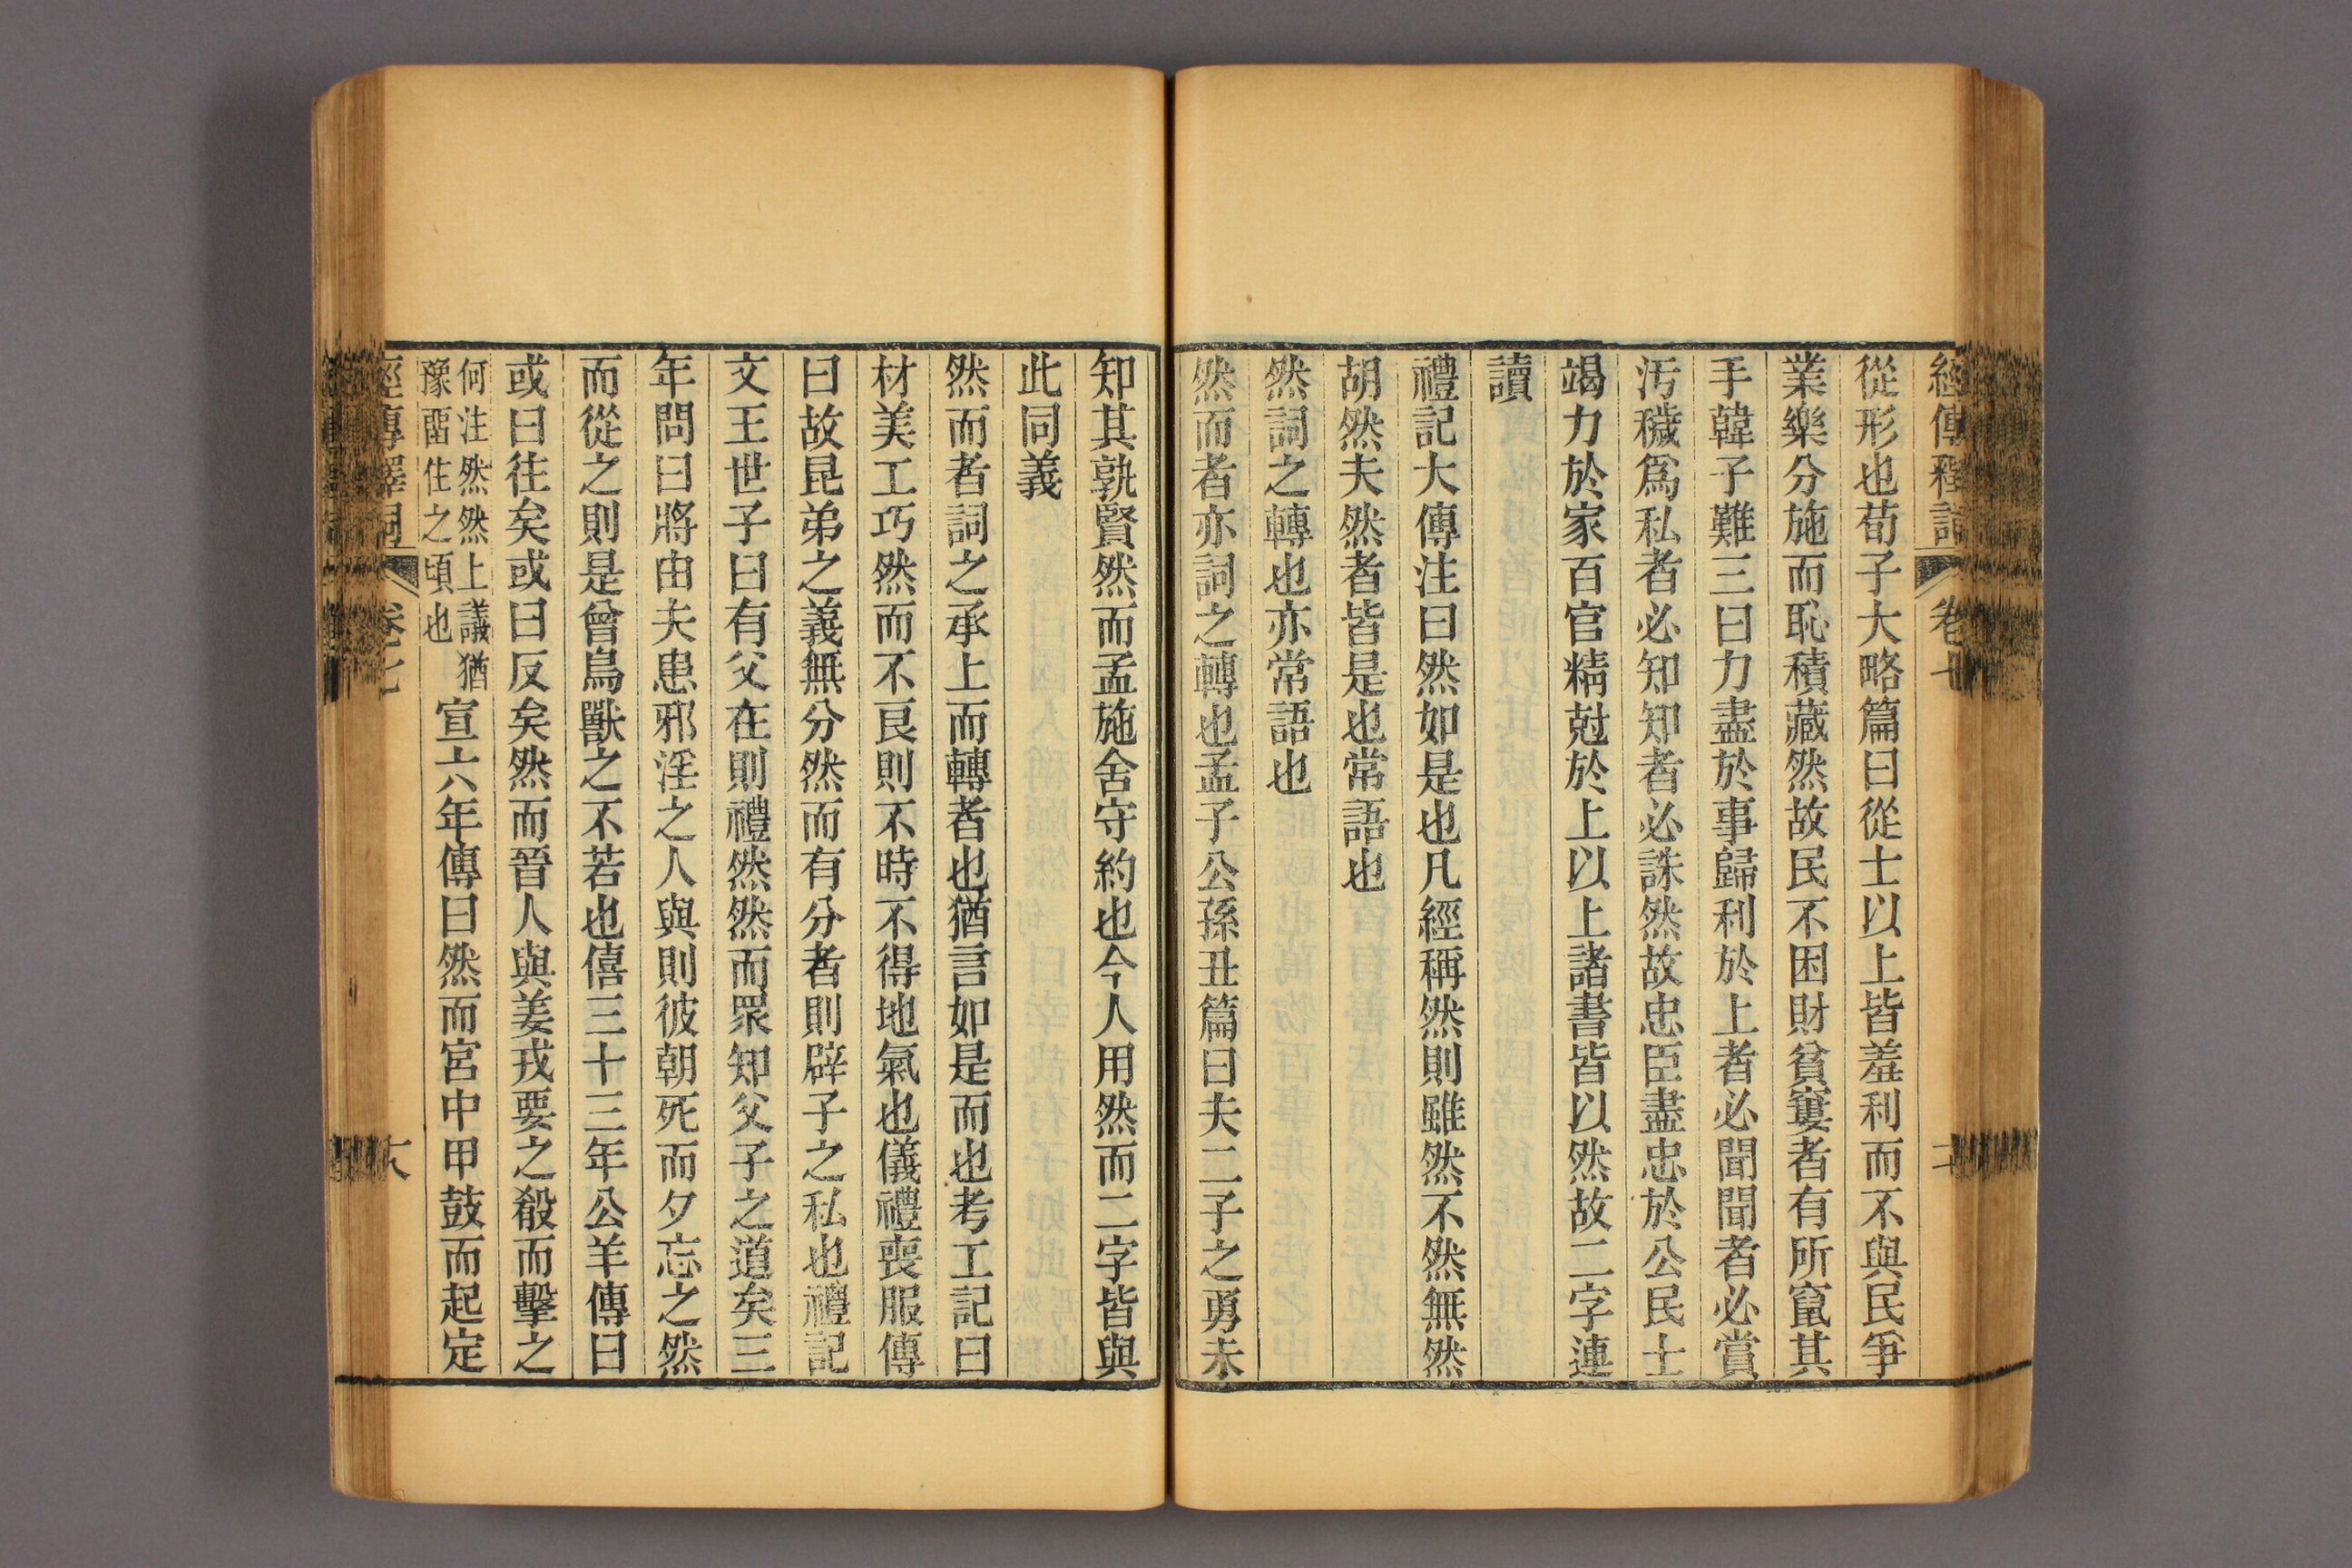 經傳釋詞 卷七
從形也荀子大略篇曰從士以上皆羞利而不與民爭
業樂分施而恥積藏然故民不困財貧窶者有所竄其
手韓子難三曰力盡於事歸利於上者必聞聞者必賞
汚穢爲私者必知知者必誅然故忠臣盡忠於公民士
竭力於家百官精尅於上以上諸書皆以然故二字連
讀
禮記大傳注曰然如是也凡經稱然則雖然不然無然
胡然夫然者皆是也常語也
然詞之轉也亦常語也
然而者亦詞之轉也孟子公孫丑篇曰夫二子之勇未
知其孰賢然而孟施舍守約也今人用然而二字皆與
此同義
然而者詞之承上而轉者也猶言如是而也考工記曰
材美工巧然而不良則不時不得地氣也儀禮喪服傳
曰故昆弟之義無分然而有分者則辟子之私也禮記
文王世子曰有父在則禮然然而眾知父子之道矣三
年問曰將由夫患邪淫之人與則彼朝死而夕忘之然
而從之則是曾鳥獸之不若也僖三十三年公羊傳曰
或曰往矣或曰反矣然而晉人與姜戎要之殽而擊之
何注然然上議猶
豫酉住之頃也
宣六年傳曰然而宮中甲鼓而起定
經傳釋詞 卷七